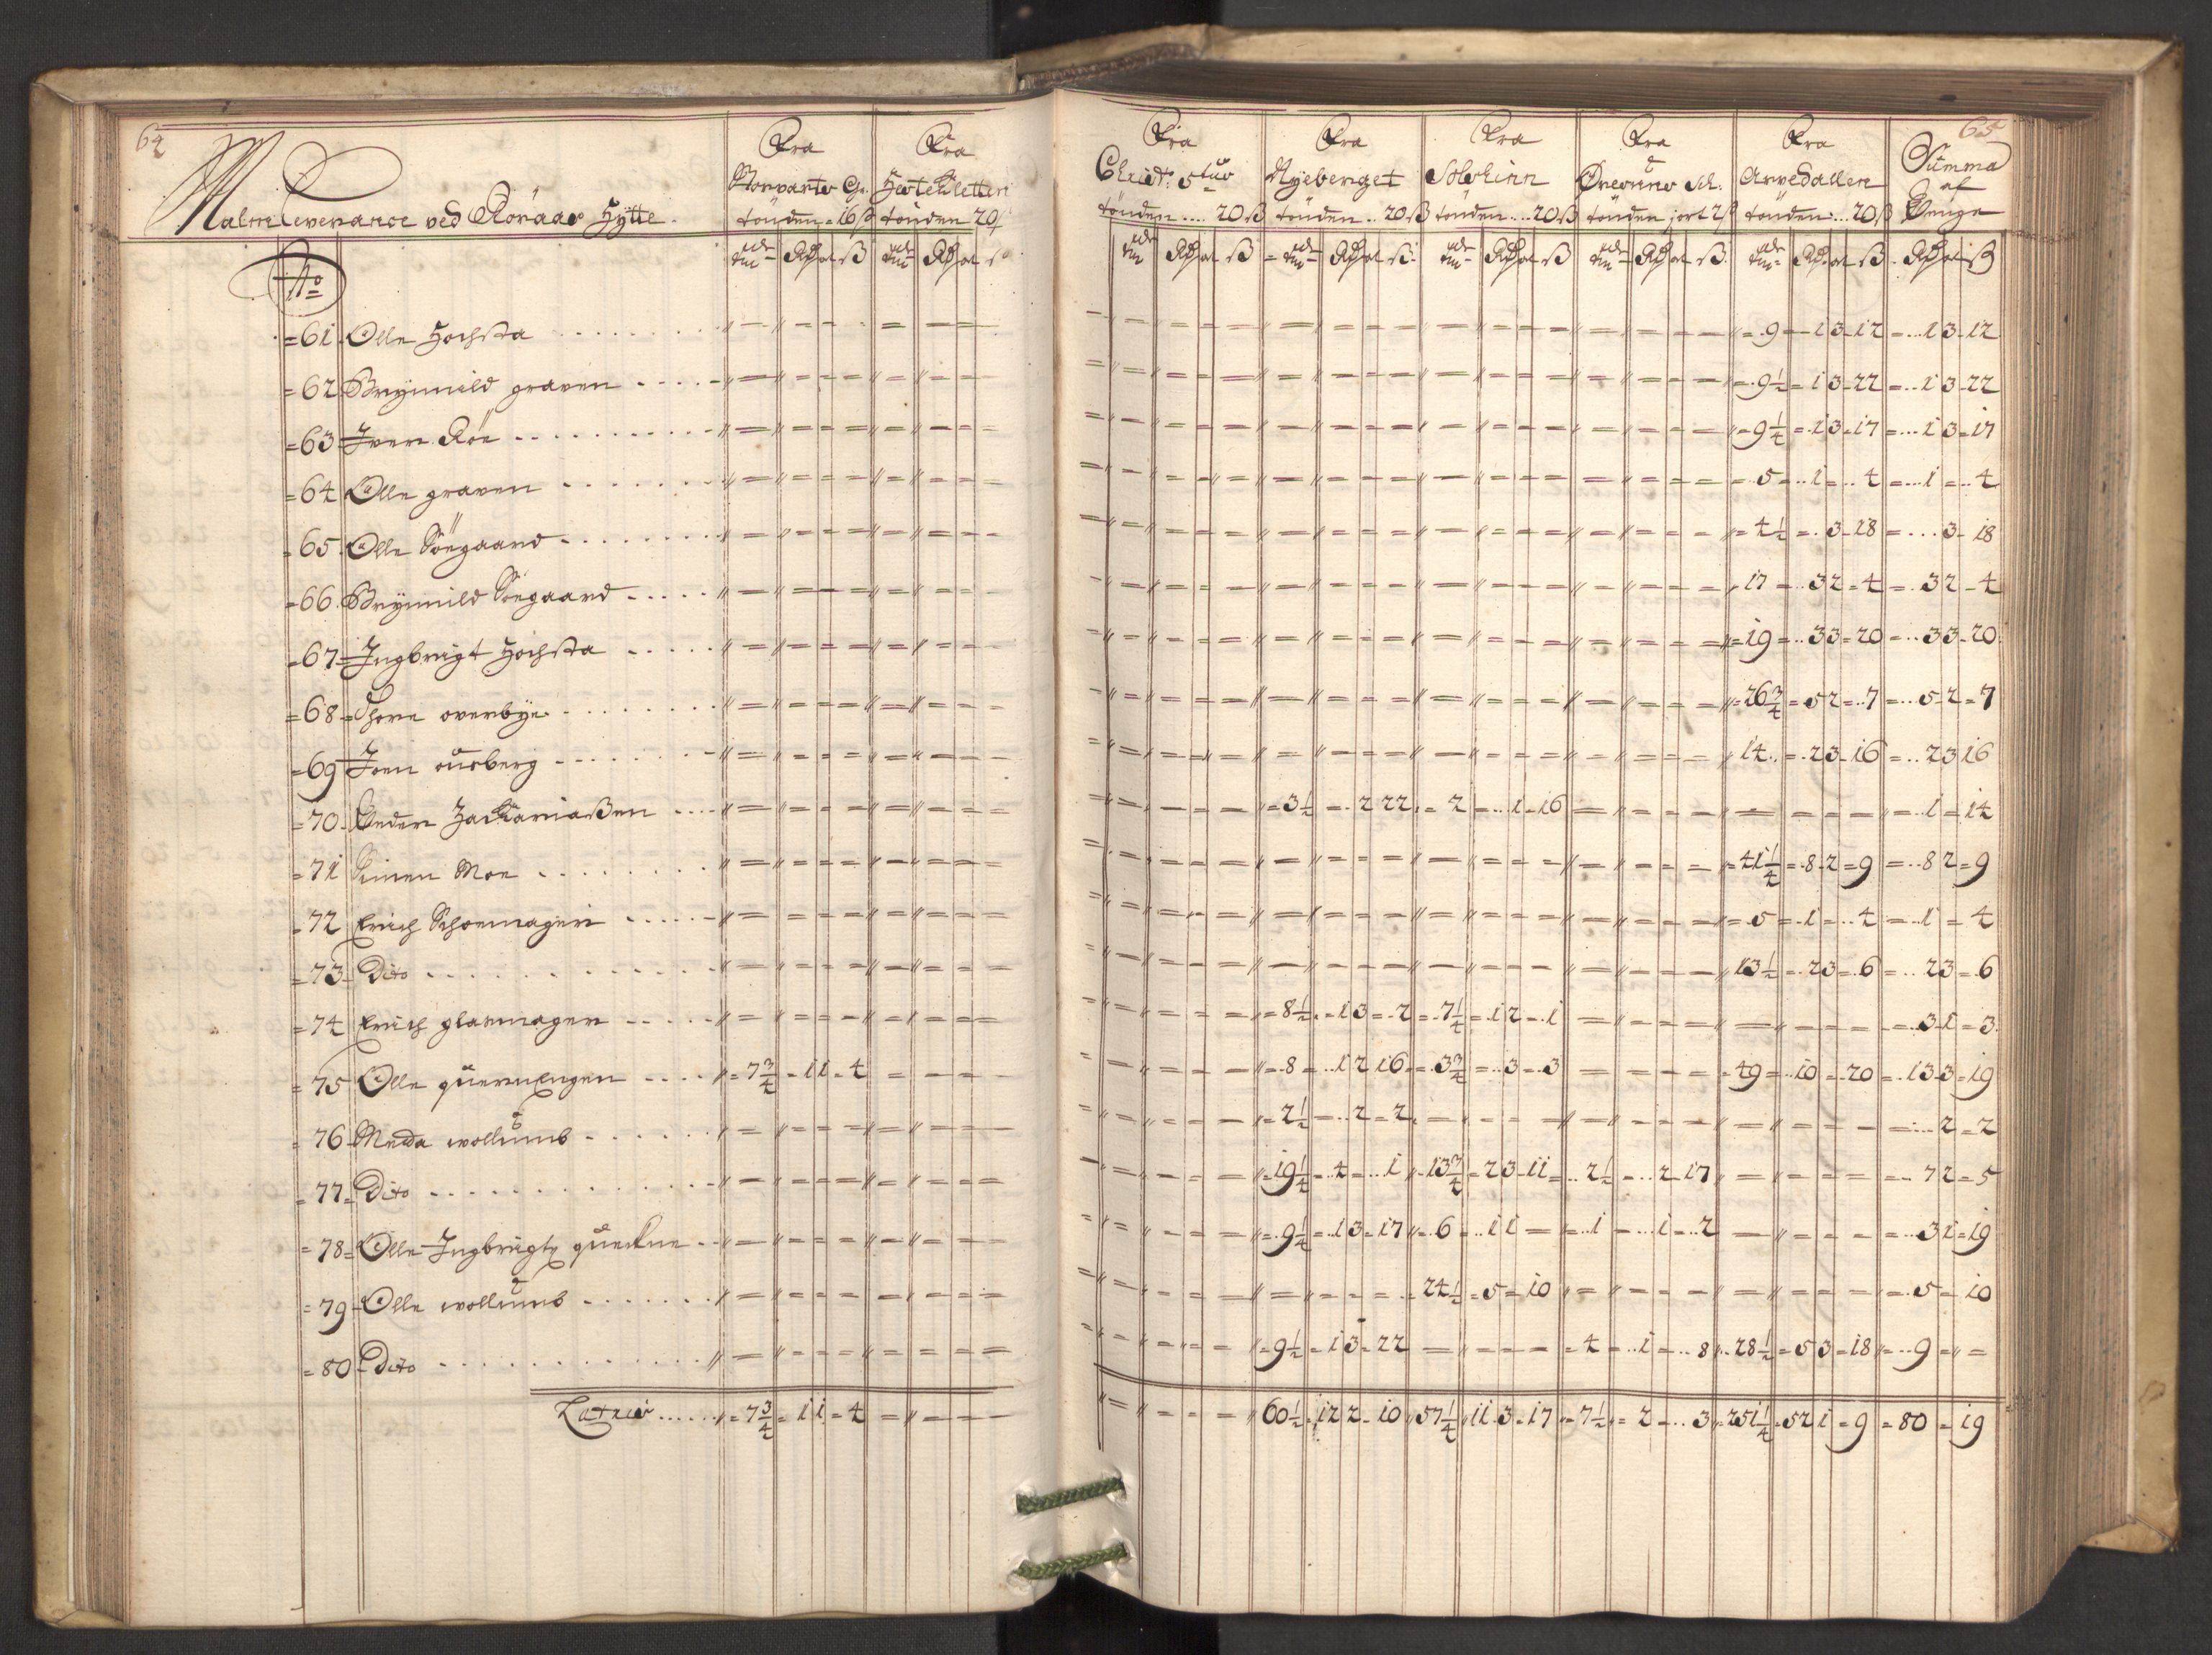 64
Malmleverance ved Röraas Hÿtte.
Fra Storvarts Gr. tönden = 16 ß
Fra Hestekletten tönden 20 ß
Fra Christ: 5tus tönden .... 20 ß
Fra Nÿeberget tönden .. 20 ß
Fra Solskinn tönden ... 20 ß
Fra Öresuns tönden
Fra Arvedallen tönden ... 20 ß
Summa af Penge
65
No
=61 Olle Hochsta = 9 = 1 3 = 12 = 1 3 = 12
=62 Brÿnnild graven = 9 1/2 = 1 3 = 22 = 1 3 = 22
=63 Iver Röe = 9 1/4 = 1 3 = 17 = 1 3 = 17
=64 Olle graven = 5 = 1 = 4 = 1 = 4
=65 Olle Söegaard = 4 1/2 = 3 = 18 = 3 = 18
=66 Brÿnnild Söegaard 17 = 3 2 = 4 = 3 2 = 4
=67 Ingbrigt Hochsta = 19 = 3 3 = 20 = 3 3 = 20
=68 Thore overbÿe = 26 3/4 = 5 2 = 7 = 5 2 = 7
=69 Joen ausberg 14 = 2 3 = 16 = 2 3 16
=70 Peder Zackariaßen = 3 1/2 = 2 22 = 2 = 1 = 16 = 1 = 14
=71 Simen Moe = 41 1/4 = 8 2 = 9 = 8 2 = 9
=72 Erich Schoemager = 5 = 1 = 4 = 1 = 4
=73 Dito 13 1/2 = 2 3 = 6 = 2 3 = 6
=74 Erich glasmager = 8 1/2 = 1 3 = 2 = 7 1/4 = 1 2 = 1 = 3 1 = 3
=75 Olle quernEngen = 7 3/4 = 1 1 = 4 = 8 = 1 2 16 = 3 3/4 = 3 = 3 = 49 = 10 = 20 = 13 3 = 19
=76 Meda wollumb = 2 1/2 = 2 = 2 = 2 = 2
=77 Dito = 19 1/4 = 4 = 1 13 3/4 = 2 3 = 11 = 2 1/2 = 2 17 = 7 2 = 5
=78 Olle Ingbrigtz = 9 1/4 = 1 3 = 17 = 6 = 1 1 = 1 = 1 = 2 = 3 1 = 19
=79 Olle wollumb 24 1/2 = 5 = 10 = 5 = 10
=80 Dito = 9 1/2 = 1 3 = 22 = 4 = 1 = 8 28 1/2 = 5 3 = 18 = 9 =
Latus = 7 3/4 = 1 1 = 4 60 1/2 = 12 2 = 10 57 1/4 11 3 = 17 = 7 1/2 = 2 = 3 = 251 1/4 = 52 1 = 9 = 80 = 19